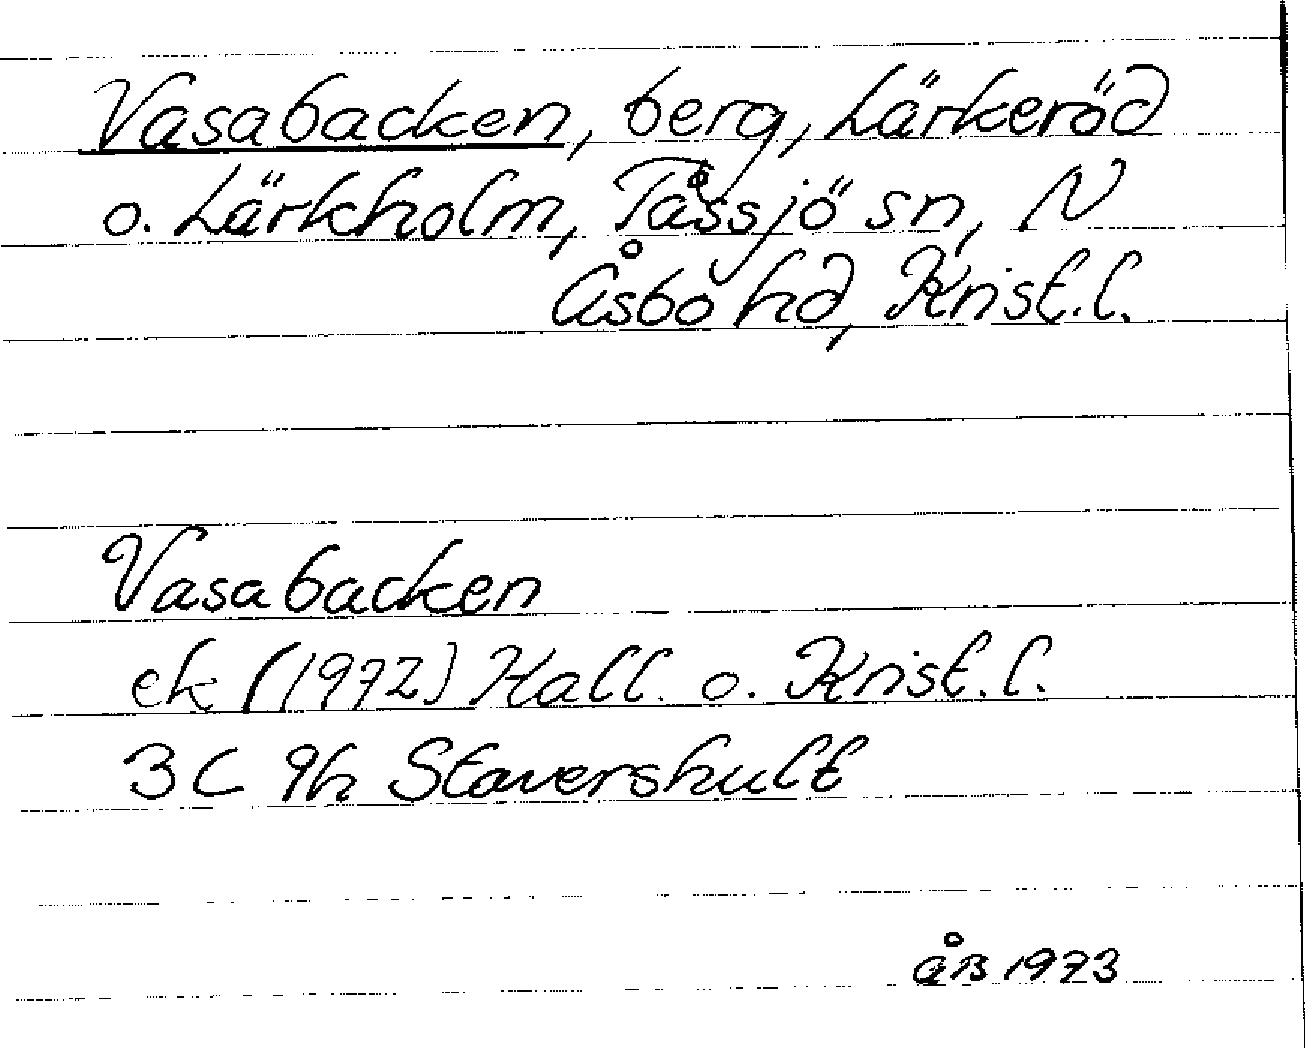 Vasabacken, berg, Lärkeröd
o. Lärkholm, Tåssjö sn, N
Åsbo hd, Krist.l.
Vasabacken
ek (1972) Hall. o. Krist.l.
3C 9h Stavershult
åB 1973